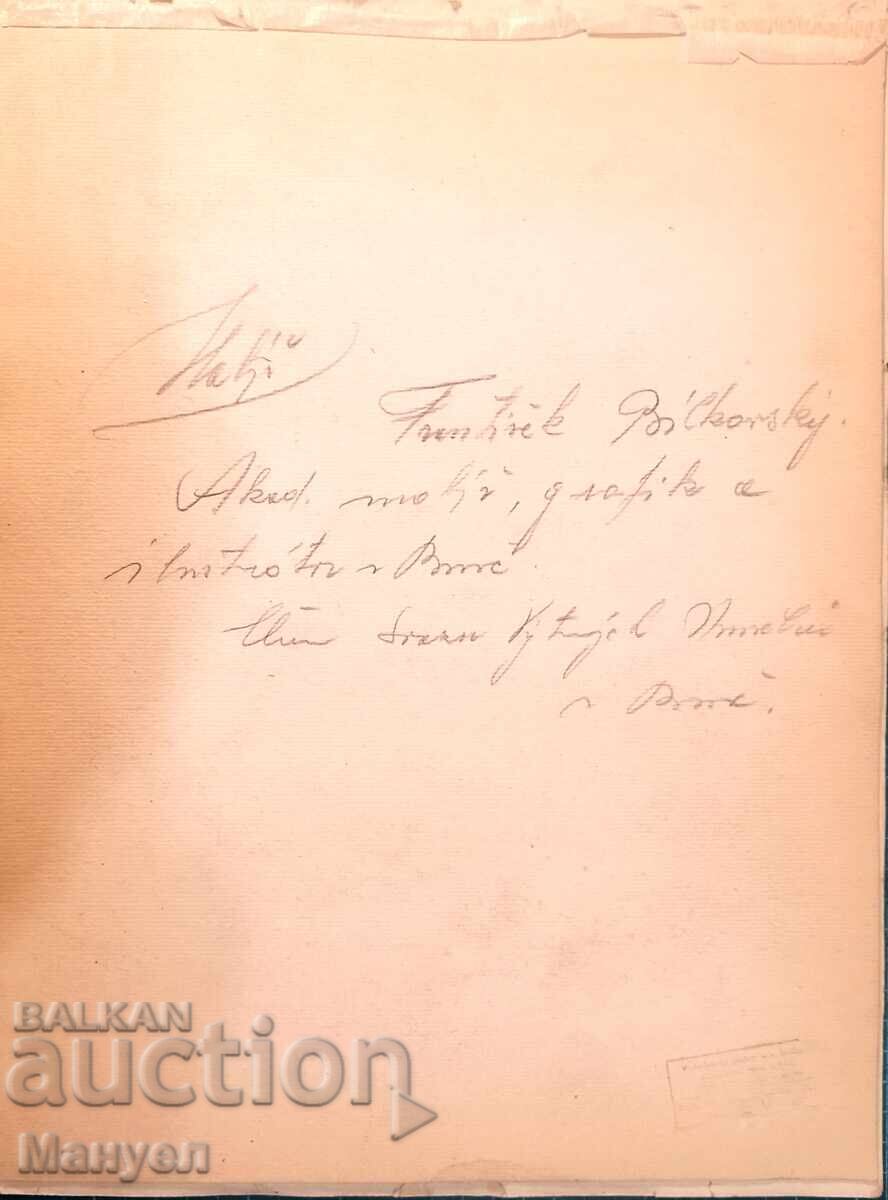 Malíř
František Bílkovský.
Akad. malíř, grafik a
ilustrátor v Brně.
Člen Svazu Výtvarných Umělců
v Brně.
BALKAN
auction
Мануел